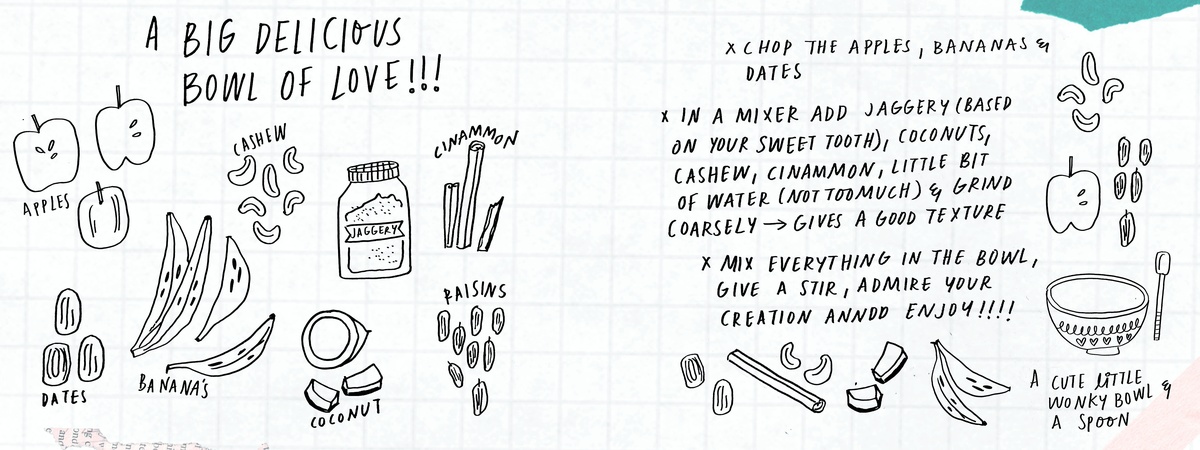 A BIG DELICIOUS
BOWL OF LOVE!!!
APPLES
CASHEW
JAGGERY
CINAMMON
DATES
BANANA'S
COCONUT
RAISINS
x CHOP THE APPLES, BANANAS &
DATES
x IN A MIXER ADD JAGGERY (BASED
ON YOUR SWEET TOOTH), COCONUTS,
CASHEW, CINAMMON, LITTLE BIT
OF WATER (NOT TOO MUCH) & GRIND
COARSELY → GIVES A GOOD TEXTURE
x MIX EVERYTHING IN THE BOWL,
GIVE A STIR, ADMIRE YOUR
CREATION ANNDD ENJOY!!!!
A CUTE LITTLE
WONKY BOWL &
A SPOON